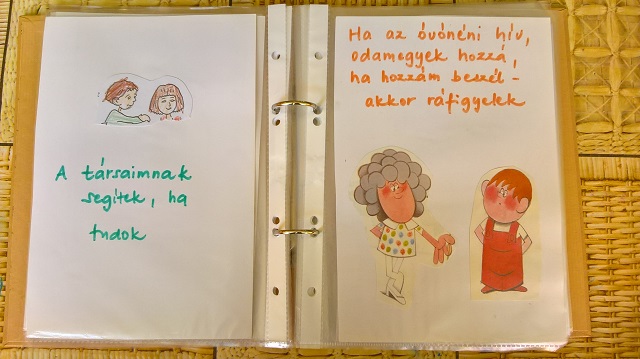 A társaimnak
segítek, ha
tudok
Ha az óvónéni hív,
odamegyek hozzá,
ha hozzám beszél -
akkor ráfigyelek